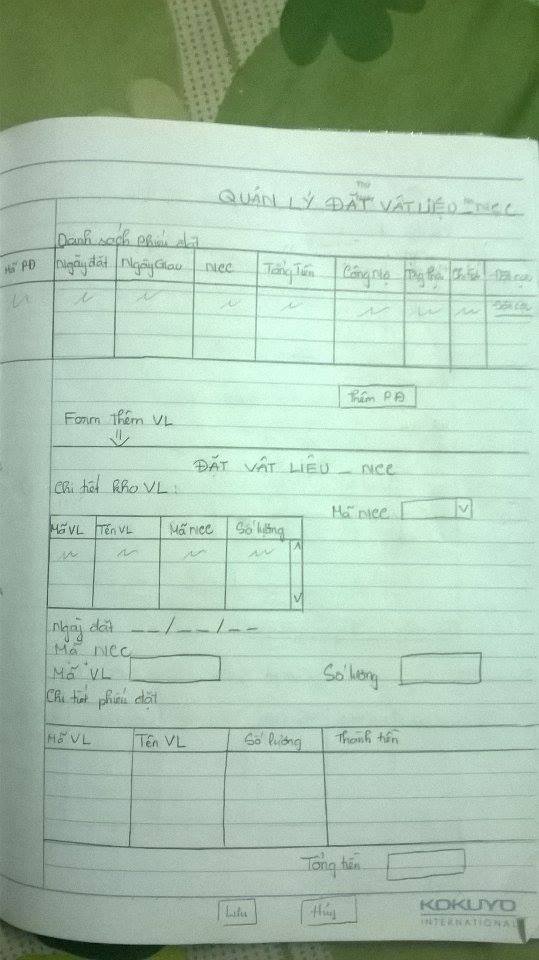 QUẢN LÝ ĐẶT VẬT LIỆU _ NCC
Danh sách phiếu đặt
Mã PĐ Ngày đặt Ngày Giao NCC Tổng Tiền Công Nợ
Thêm PĐ
Form Thêm VL
ĐẶT VẬT LIỆU _ NCC
Chi tiết kho VL:
Mã NCC V
Mã VL Tên VL Mã NCC Số lượng
Ngày đặt __/__/__
Mã NCC
Mã VL Số lượng
Chi tiết phiếu đặt
Mã VL Tên VL Số lượng Thành tiền
Tổng tiền
Lưu Hủy
KOKUYO
INTERNATIONAL